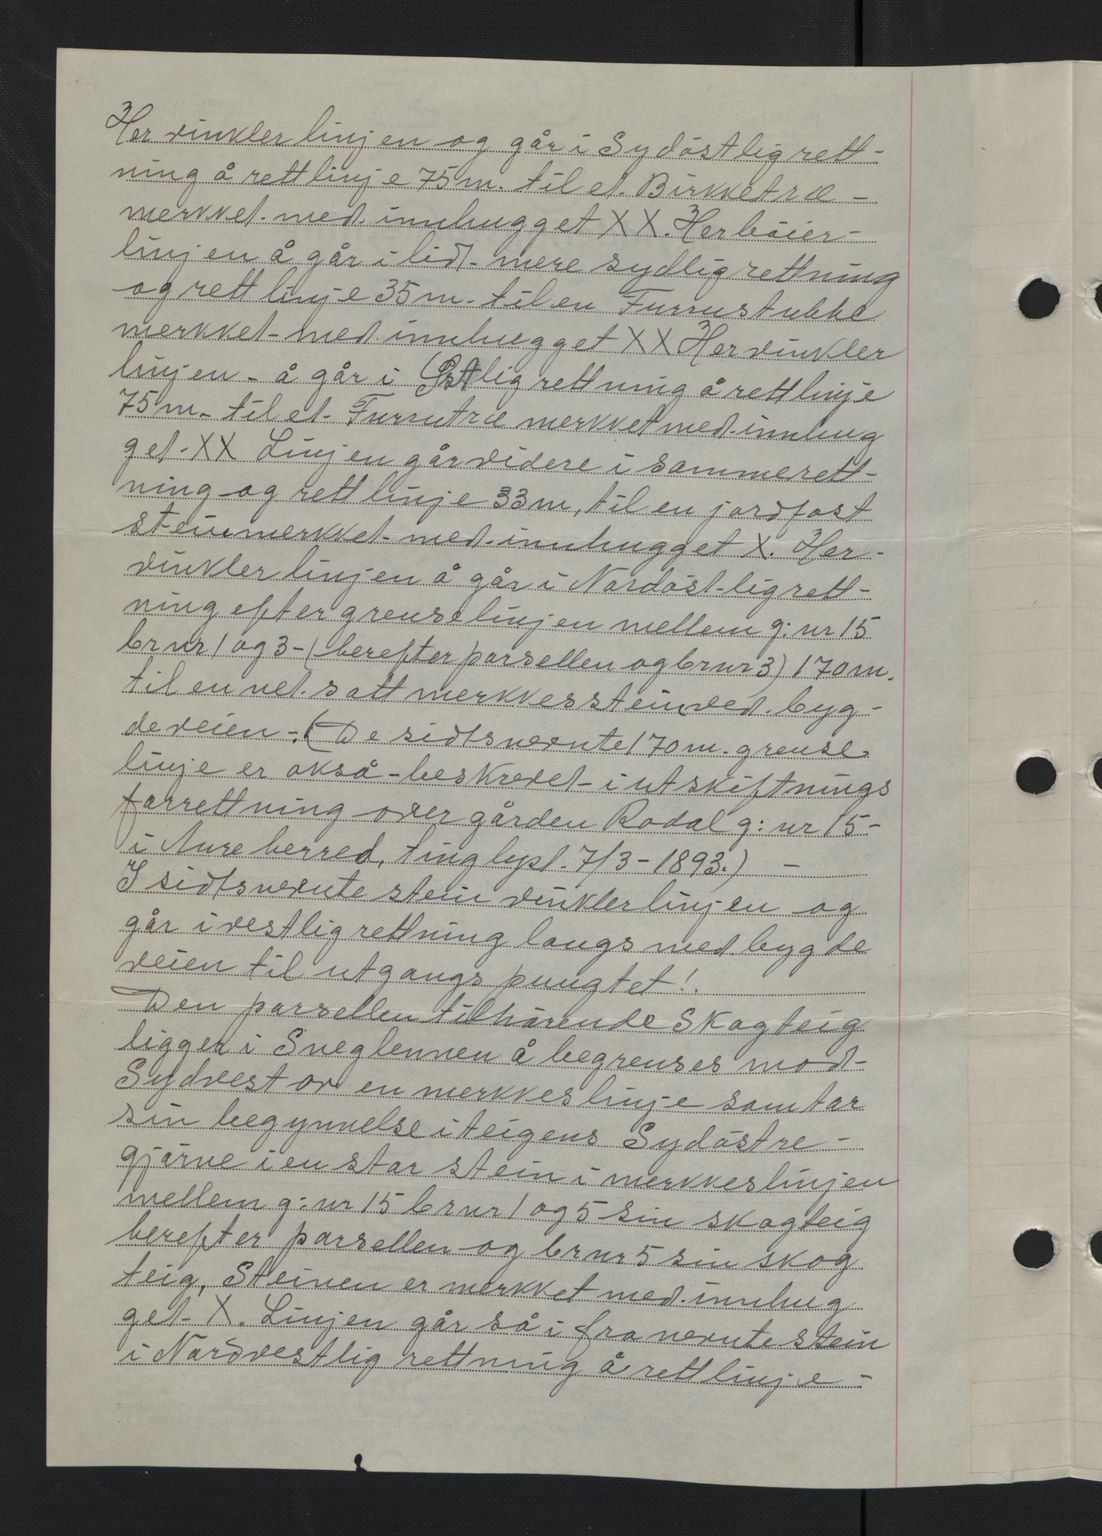 Her vinkler linjen og går i Sydöstlig rett-
ning å rett linje 75 m. til et. Birkketræ -
merkket. med. innhugget XX. Her böier-
linjen å går i lidt- mere sydlig rettning
og rett linje 35 m. til en Furrustubbe
merkket- med innhugget XX Her vinkler
linjen - å går i Östlig rettning å rett linje
75 m. til et- Furrutræ merkket med. innhug
get - XX Linjen går videre i samme rett-
ning og rett linje 33 m, til en jordfast
stein merkket- med. innhugget X. Her -
vinkler linjen å går i Nordöst-lig rett-
ning efter grenselinjen mellem g: nr 15
br nr 1 og 3 - (herefter parsellen og br nr 3) 170 m.
til en ned. satt merkkesstein, ved. byg-
deveien -. (De sidtsnevnte 170 m. grense
linje er också - beskrevet - i utskiftnings
forrettning over gården Rodal g: nr 15 -
i Aure herred, tinglyst. 7/3 - 1893.) -
I sidtsnevnte stein vinkler linjen og
går i vestlig rettning langs med bygde
veien til utgangs pungtet!.
Den parsellen tilhörende Skogteig
ligger i Sneglennen å begrenses mod-
Sydvest av en merkkeslinje som tar
sin begynnelse i teigens Sydöstre -
gjörne i en stor stein i merkkeslinjen
mellem g: nr 15 br nr 1 og 5 sin skogteig
herefter parsellen og br nr 5 sin skog
teig, Steinen er merkket med. innhug
get- X. Linjen går så i fra nevnte stein
i Nordvestlig rettning å rett linje -